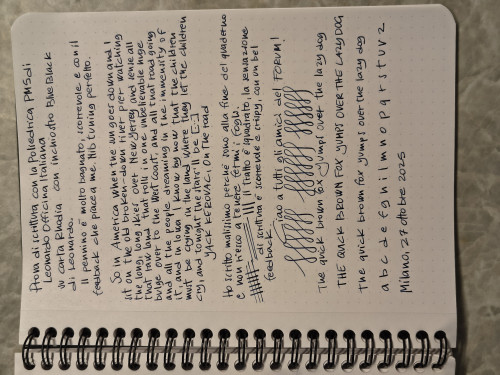 Prova di scrittura con la Poliedrica PMS di
Leonardo Officina Italiana
su carta Rhodia con inchiostro Blue Black
di Leonardo.
Il pennino è molto bagnato, scorrevole e con il
feedback che piace a me. Nib tuning perfetto.
So in America when the sun goes down and I
sit on the old broken-down river pier watching
the long, long skies over New Jersey and sense all
that raw land that rolls in one unbelievable huge
bulge over to the West Coast, and all that road going
and all the people dreaming in the immensity of
it, and in Iowa I know by now that the children
must be crying in the land where they let the children
cry, and tonight the stars'll be [...]
YACK KEROUAC, On the road
Ho scritto malissimo perché sono alla fine del quaderno
e non riesco a tenere fermi i fogli.
Il tratto è quadrato, la sensazione
di scrittura è scorrevole e crispy, con un bel
feedback.
Ciao a tutti gli amici del FORUM!
The quick brown fox jumps over the lazy dog
THE QUICK BROWN FOX JUMPS OVER THE LAZY DOG
The quick brown fox jumps over the lazy dog
a b c d e f g h i l m n o p q r s t u v z
Milano, 27 ottobre 2025